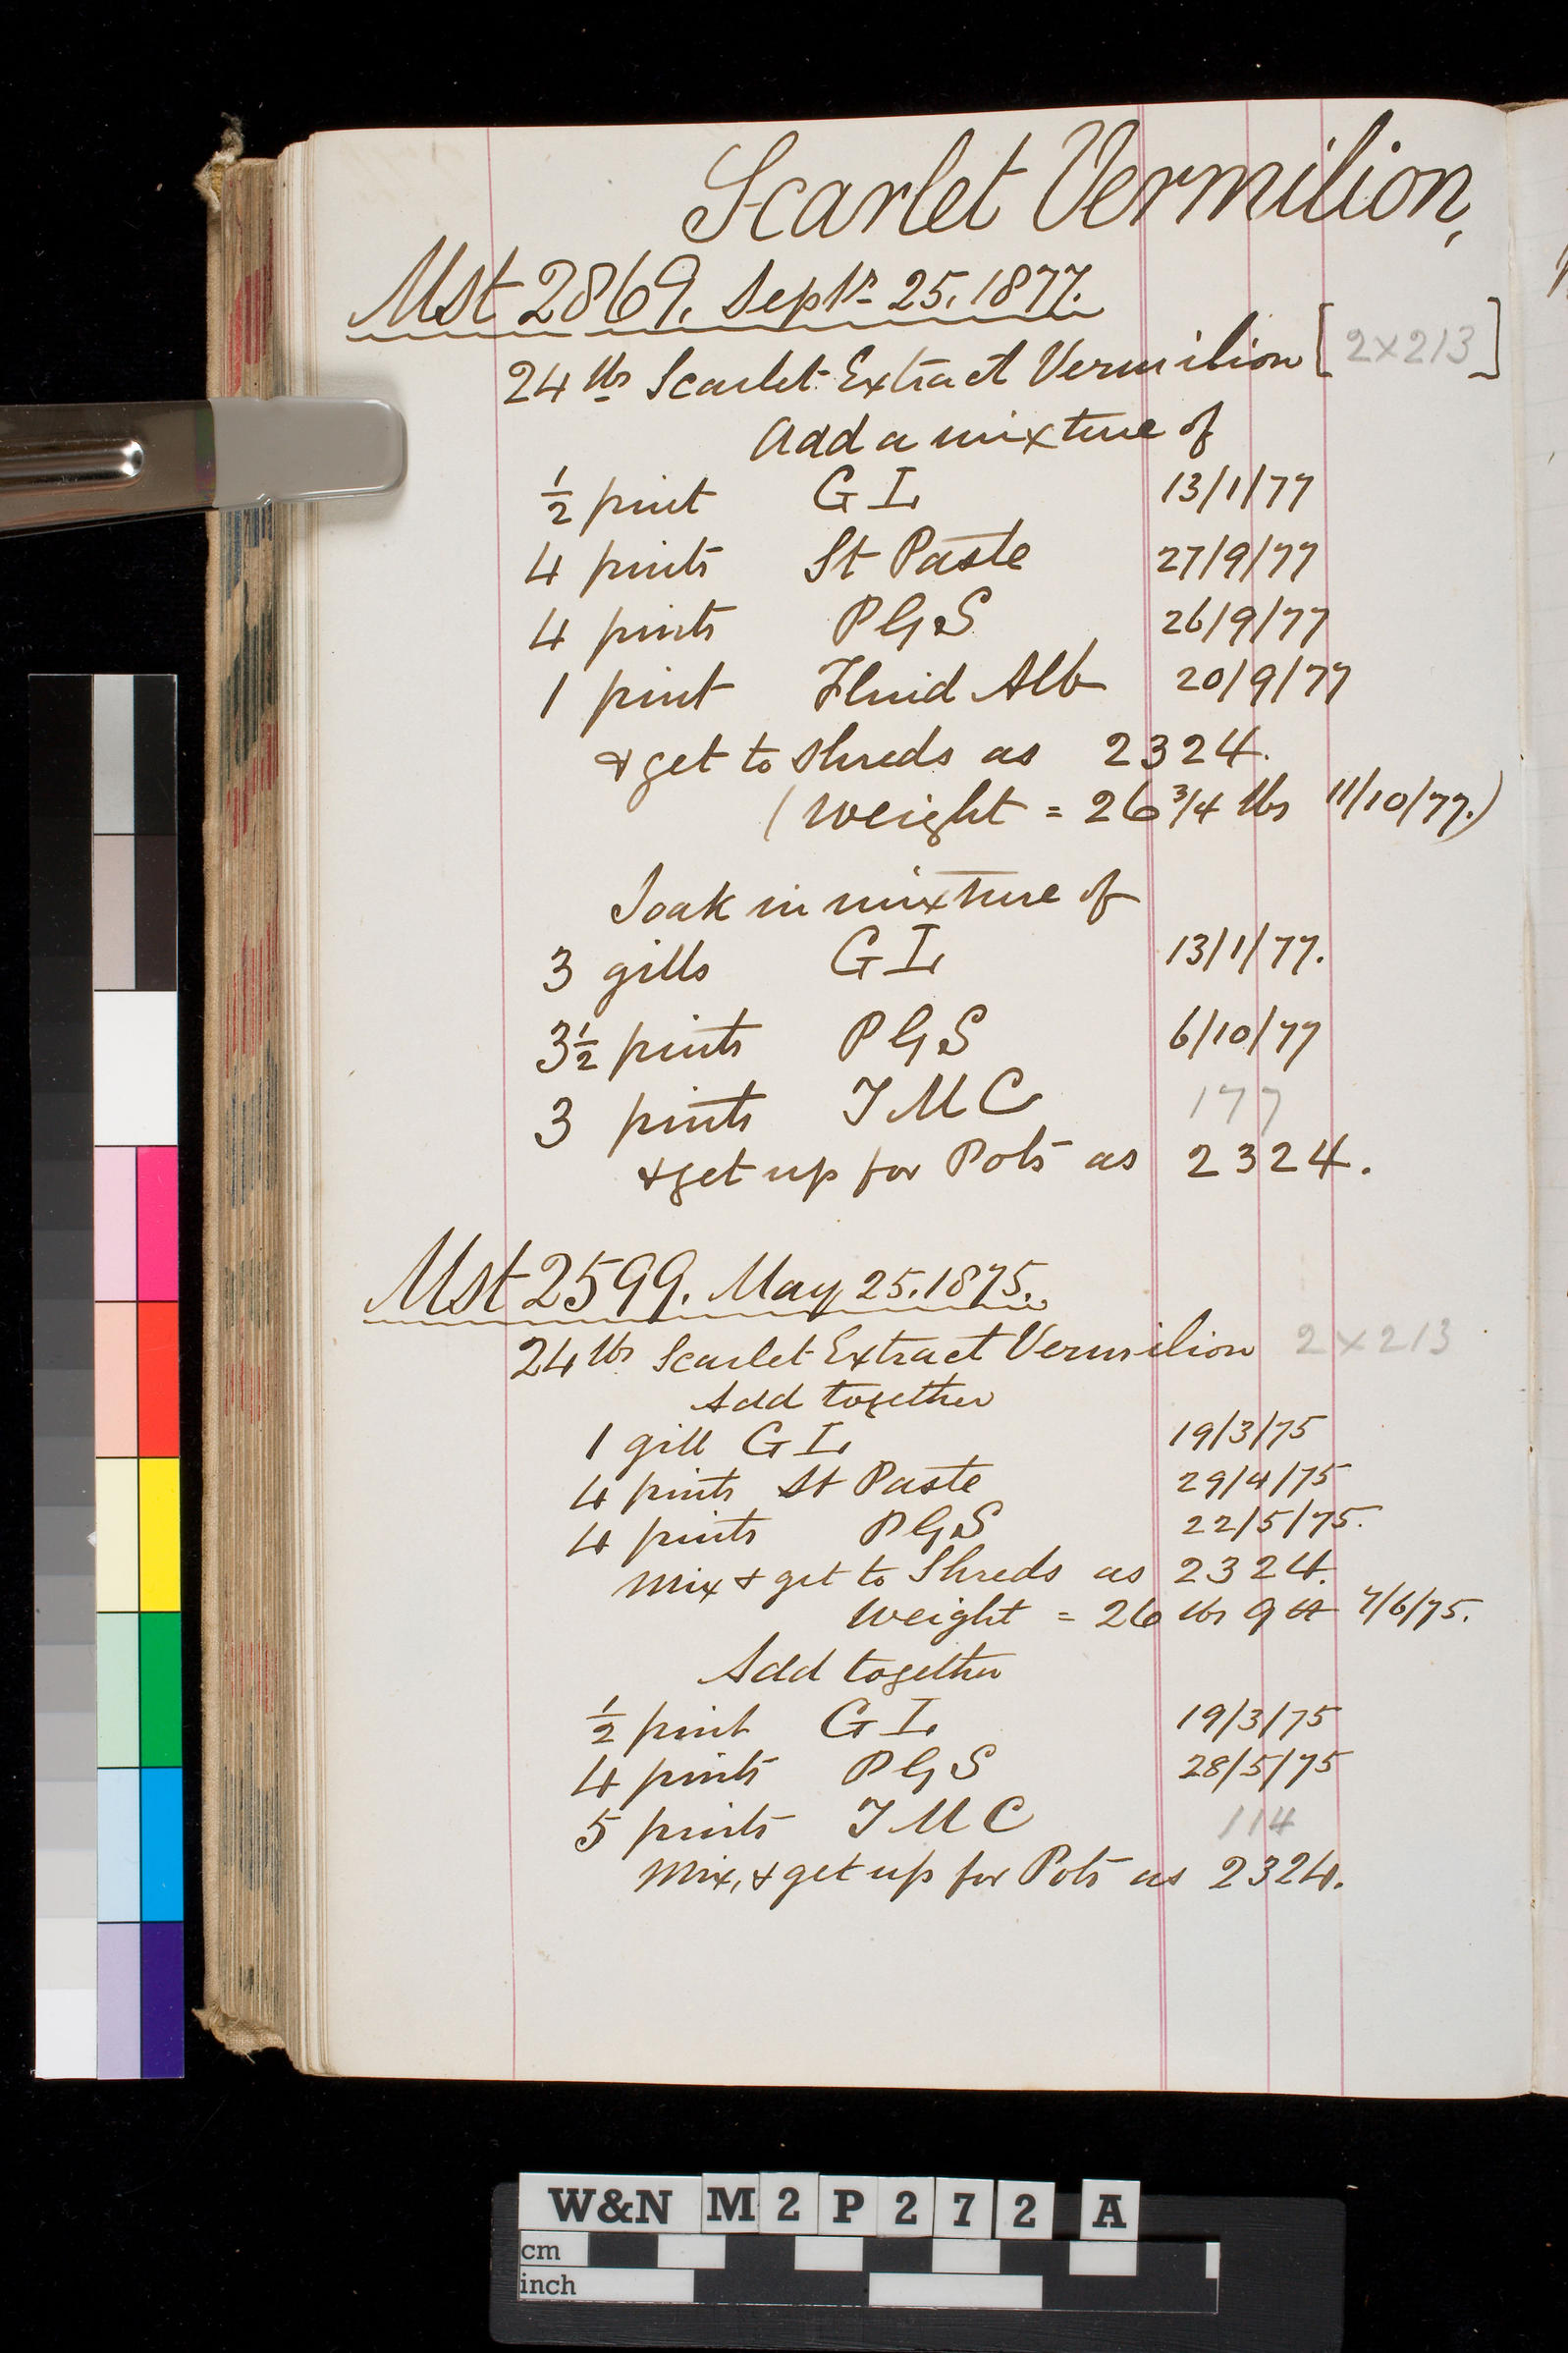 Scarlet Vermilion,
Mst 2869. Septr 25. 1877.
24 lbs Scarlet Extract Vermilion [2x213]
Add a mixture of
½ pint G I 13/1/77
4 pints St Paste 27/9/77
4 pints P G S 26/9/77
1 pint Fluid Alb 20/9/77
& get to shreds as 2324.
(Weight = 26 3/4 lbs 11/10/77.)
Soak in mixture of
3 gills G I 13/1/77.
3½ pints P G S 6/10/77
3 pints I M C 177
& get up for Pots as 2324.
Mst 2599. May 25. 1875.
24 lbs Scarlet Extract Vermilion 2x213
Add together
1 gill G I 19/3/75
4 pints St Paste 29/4/75
4 pints P G S 22/5/75.
Mix & get to Shreds as 2324.
Weight = 26 lbs 9 7/6/75.
Add together
½ pint G I 19/3/75
4 pints P G S 28/5/75
5 pints I M C 114
Mix, & get up for Pots as 2324.
W&N M 2 P 2 7 2 A
cm
inch